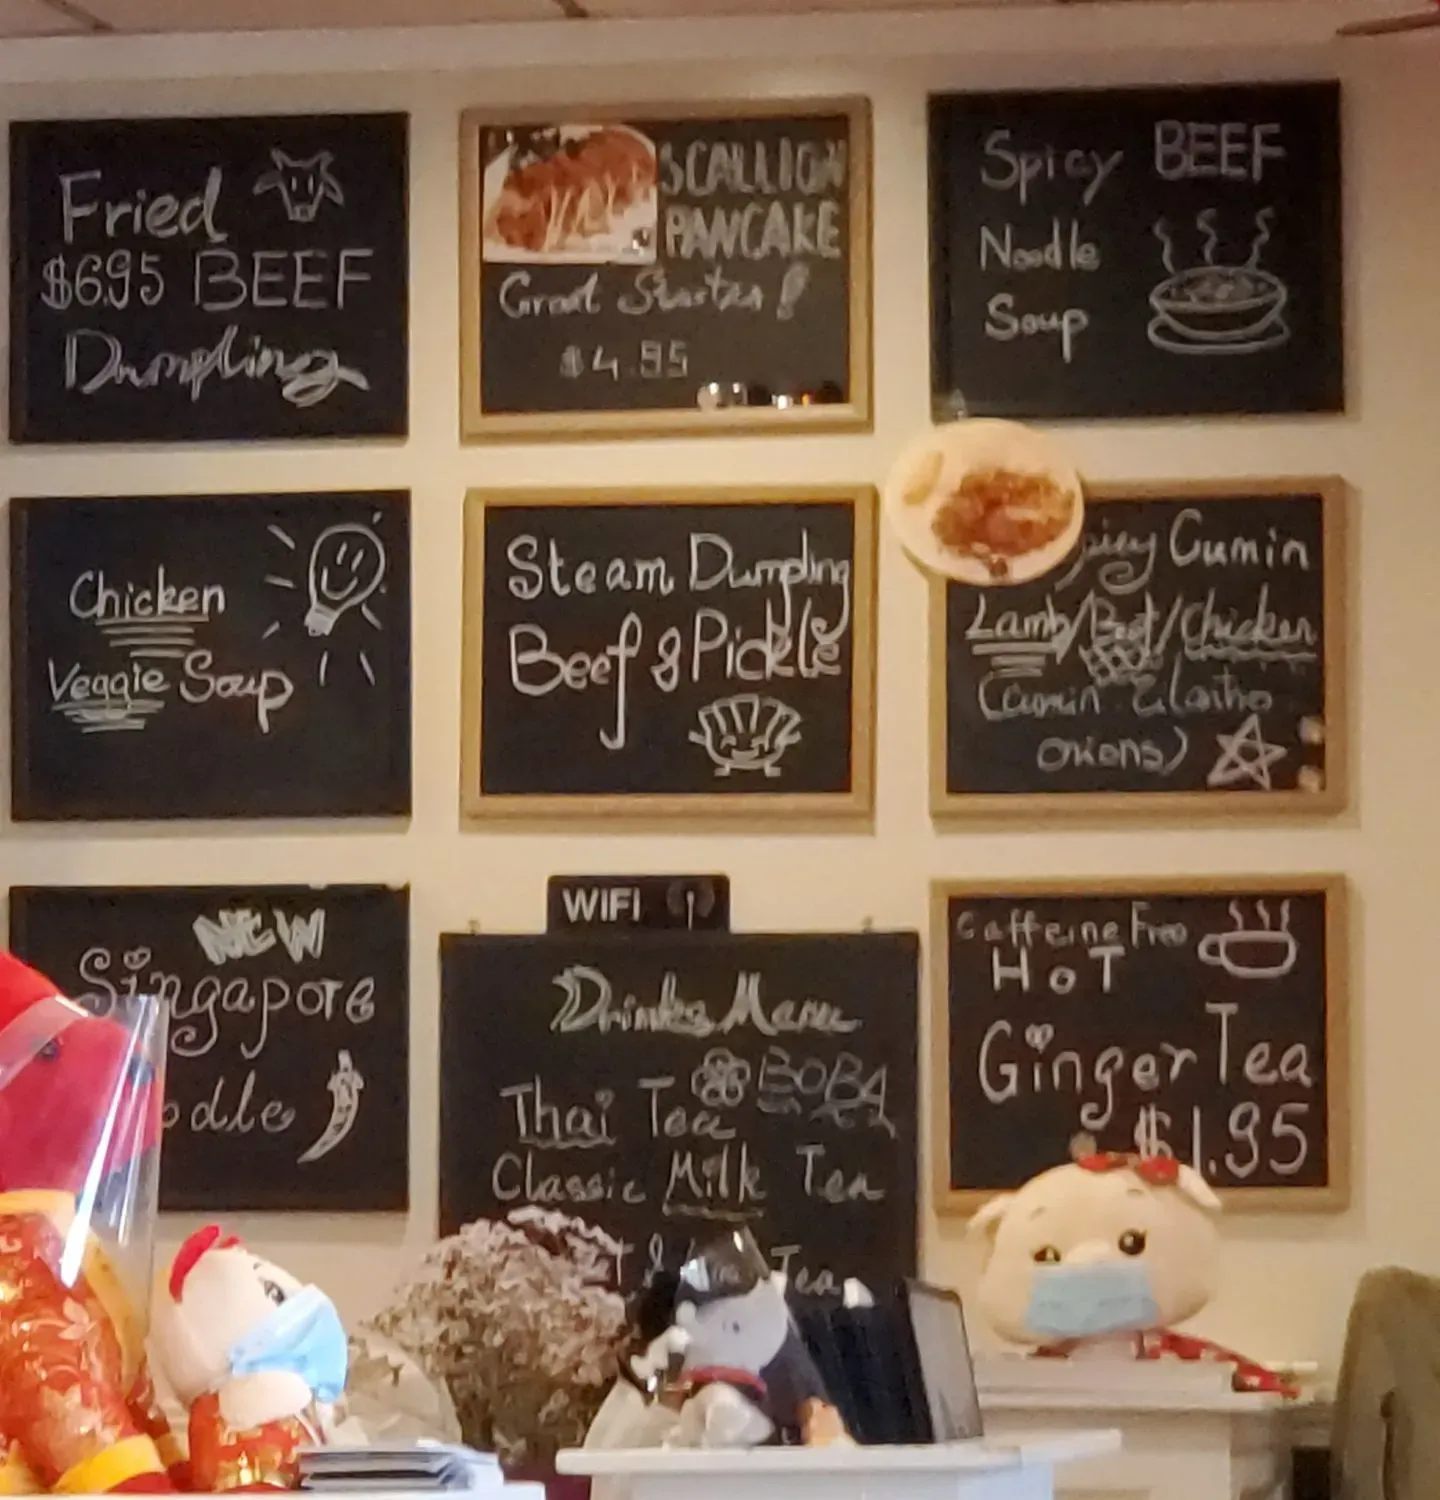 Fried
$6.95 BEEF
Dumpling
SCALLION
PANCAKE
Great Starter!
$4.95
Spicy BEEF
Noodle
Soup
Chicken
Veggie Soup
Steam Dumpling
Beef & Pickle
Cumin
Lamb/Beef/Chicken
(Cumin Cilantro
onions)
NEW
Singapore
WIFI
Drinks Menu
Thai Tea BOBA
Classic Milk Tea
Tea
Caffeine Free
HOT
Ginger Tea
$1.95